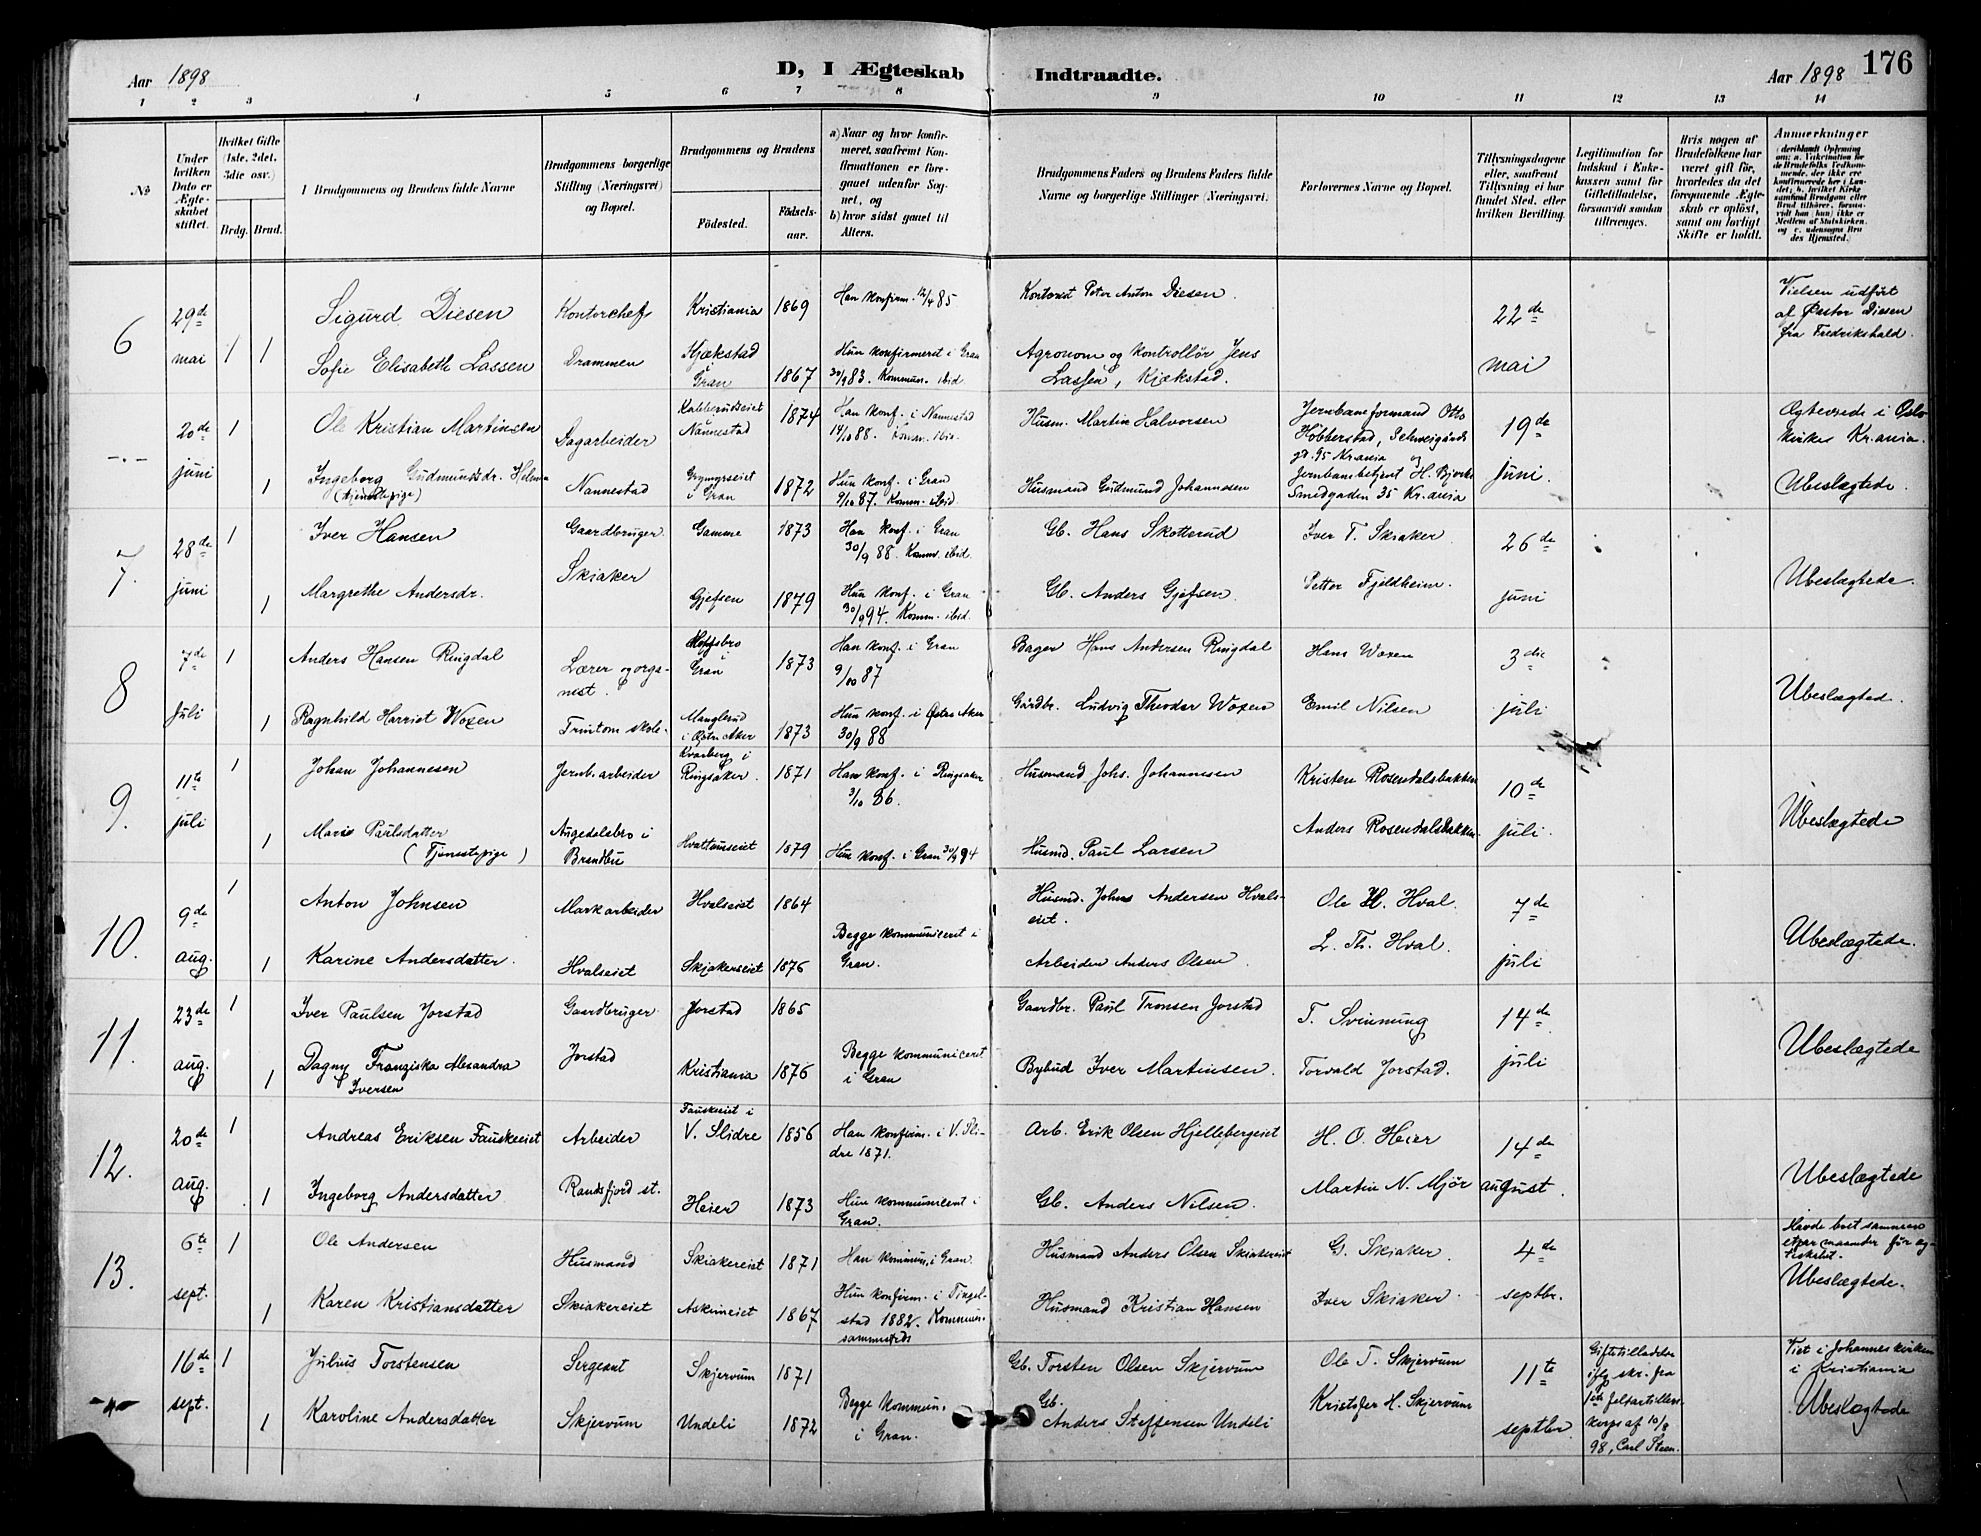 176
Aar 1898 D, I Ægteskab Indtraadte. Aar 1898
1 2 3 4 5 6 7 8 9 10 11 12 13 14
No
Under hvilken Dato er Ægteskabet stiftet.
Hvilket Gifte (1ste, 2det, 3die osv.)
Brdg. Brud.
Brudgommens og Brudens fulde Navne
Brudgommens borgerlige Stilling (Næringsvei) og Bopæl.
Brudgommens og Brudens
Födested. Födselsaar.
a) Naar og hvor konfirmeret, saafremt Konfirmationen er foregaaet udenfor Sognet, og
b) hvor sidst gaaet til Alters.
Brudgommens Faders og Brudens Faders fulde Navne og borgerlige Stillinger (Næringsvei.
Forlovernes Navne og Bopæl.
Tillysningsdagene eller, saafremt Tillysning ei har fundet Sted, efter hvilken Bevilling.
Legitimation for Indskud i Enkekassen samt for Giftetilladelse, forsaavidt saadan tiltrænges.
Hvis nogen af Brudefolkene har været gift før, hvorledes da det foregaaende Ægteskab er oplöst, samt om lovligt Skifte er holdt.
Anmerkninger
6 29de mai 1 1
Sigurd Diesen Kontorchef Kristiania 1869 Han konfirm. 12/4 85 Kontorist Peter Anton Diesen. 22de mai Vielsen udført af Pastor Diesen fra Fredrikshald.
Sofie Elisabeth Lassen Drammen Kjækstad i Gran 1867 Hun konfirmeret i Gran 30/9 83. Kommun. ibid. Agronom og kontrollör Jens Lassen, Kjækstad.
-"- 20de juni 1 1
Ole Kristian Martinsen Sagarbeider Nannestad 1874 Han konf. i Nannestad 14/10 88. Komm. ibid. Husm. Martin Halvorsen Jernbaneformand Otto Hobberstad, Schweigårds gt. 95 Kr.ania og 19de juni Ægteviede i Oslo kirke Kr.ania.
Ingeborg Gudmundsdr. Helmen (tjenestepige) Nannestad Grymyrseiet i Gran 1872 Hun konf. i Gran 9/10 87. Komm. ibid. Husmand Gudmund Johannesen Jernbanebetjent H. Bjerke Smedgaden 35 Kr.ania Ubeslægtede.
7. 28de juni 1 1
Iver Hansen Gaardbruger Gamme 1873 Han konf. i Gran 30/9 88. Komm. ibid. Gb. Hans Skotterud Iver T. Skiaker. 26de juni Ubeslægtede.
Margrethe Andersdr. Skiaker Gjefsen 1879 Hun konf. i Gran 30/9 94. Komm. ibid. Gb. Anders Gjefsen. Petter Fjeldheim.
8 7de juli 1 1
Anders Hansen Ringdal Lærer og organist. Gran 1873 Han konf. i Gran 9/10 87 Bager Hans Andersen Ringdal Hans Woxen 3die juli Ubeslægted.
Ragnhild Harriet Woxen Trintom skole Manglerud i Østre Aker 1873 Hun konf. i Østre Aker 30/9 88 Gårdbr. Ludvig Theodor Woxen Emil Nilsen
9. 11te juli 1 1
Johan Johannesen Jernb.arbeider Kvarberg i Ringsaker. 1871 Han konf. i Ringsaker 3/10 86. Husmand Johs. Johannesen Kristen Rosendalsbakken 10de juli. Ubeslægtede
Marie Paulsdatter (Tjenestepige) Augedalsbro i Brandbu Hvattumseiet 1879 Hun konf. i Gran 30/9 94 Husmd. Paul Larsen Anders Rosendalsbakken.
10. 9de aug. 1 1
Anton Johnsen Markarbeider Hvalseiet 1864 Husmd. Johns Andersen Hvalseiet. Ole H. Hval. 7de juli Ubeslægtede.
Karine Andersdatter. Hvalseiet Skjakerseiet 1876 Begge kommuniceret i Gran. Arbeider Anders Olsen. L. Th. Hval.
11. 23de aug. 1 1
Iver Paulsen Jorstad Gaardbruger Jorstad 1865 Gaardbr. Paul Tronsen Jorstad T. Svinning 14de juli Ubeslægtede
Dagny Franziska Alexandra Iversen Jorstad Kristiania 1876 Begge kommuniceret i Gran Bybud Iver Martinsen. Torvald Jorstad.
12. 20de aug. 1 1
Andreas Eriksen Fauskeeiet Arbeider Fauskeeiet i V. Slidre 1856 Han konfirm. i V. Slidre 1871. Arb. Erik Olsen Hjellebergeiet H. O. Heier 14de august. Ubeslægtede
Ingeborg Andersdatter Randsfjord st. Heier 1873 Hun kommunicent i Gran. Gb. Anders Nilsen. Martin N. Mjør
13. 6te sept. 1 1
Ole Andersen Husmand Skiakereiet 1871 Han kommun. i Gran. Husmand Anders Olsen Skiakereiet G. Skiaker. 4de septbr. Havde boet sammen etpar maaneder før ægteskabet.
Karen Kristiansdatter Skiakereiet Askimeiet 1867 Hun konfirm. i Tingelstad 1882. Kommun. sammesteds Husmand Kristian Hansen Iver Skiaker. Ubeslægtede.
-"- 16de sept. 1 1
Julius Torstensen Sergeant Skjervum 1871 Gb. Torsten Olsen Skjervum Ole T. Skjervum 11te septbr. Giftetilladelse ifg skr. fra 1ste feltartilleri korps af 10/8 98, Carl Steen. Viet i Johanneskirken i Kristiania
Karoline Andersdatter Skjervum Undeli 1872 Begge kommun. i Gran. Gb. Anders Steffensen Undeli Kristofer H. Skjervum Ubeslægtede